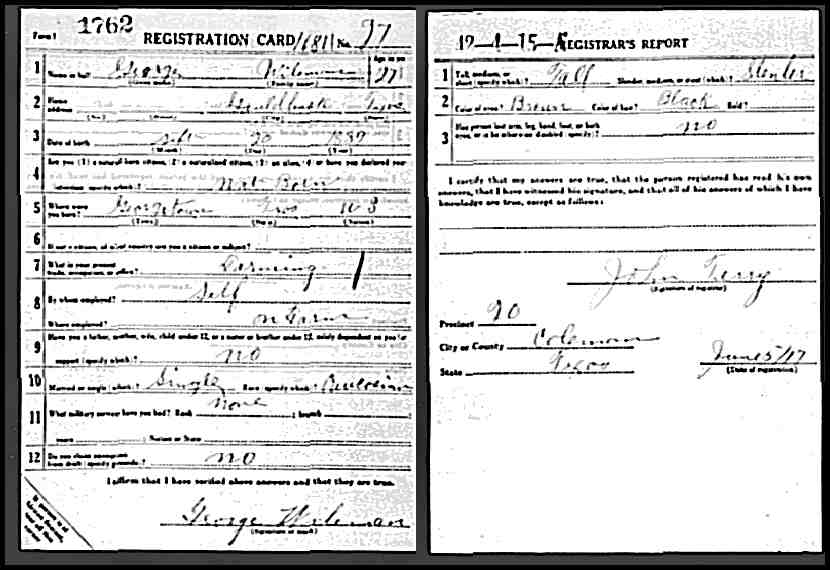 Form 1 1762 REGISTRATION CARD 1681 No. 27
1 Name in full George Wileman Age in yrs 27
(Given name) (Family name)
2 Home address Texas
(No.) (Street) (City) (State)
3 Date of birth Sept 20 1889
(Month) (Day) (Year)
4 Are you (1) a natural born citizen, (2) a naturalized citizen, (3) an alien, (4) or have you declared your
intention (specify which)? Nat. Born
5 Where were you born? Georgetown Texas U S
(Town) (State) (Nation)
6 If not a citizen, of what country are you a citizen or subject?
7 What is your present trade, occupation, or office? Farming
8 By whom employed? Self
Where employed? on Farm
9 Have you a father, mother, wife, child under 12, or a sister or brother under 12, solely dependent on you for
support (specify which)? no
10 Married or single (which)? Single Race (specify which)? Caucasian
11 What military service have you had? Rank none ; branch
years ; Nation or State
12 Do you claim exemption from draft (specify grounds)? no
I affirm that I have verified above answers and that they are true.
George Wileman
(Signature or mark)
42-4-15-A REGISTRAR'S REPORT
1 Tall, medium, or short (specify which)? Tall Slender, medium, or stout (which)? Slender
2 Color of eyes? Brown Color of hair? Black Bald?
3 Has person lost arm, leg, hand, foot, or both eyes, or is he otherwise disabled (specify)? no
I certify that my answers are true, that the person registered has read his own
answers, that I have witnessed his signature, and that all of his answers of which I have
knowledge are true, except as follows:
John Terry
(Signature of registrar)
Precinct 20
City or County Coleman
State Texas June 5/17
(Date of registration)